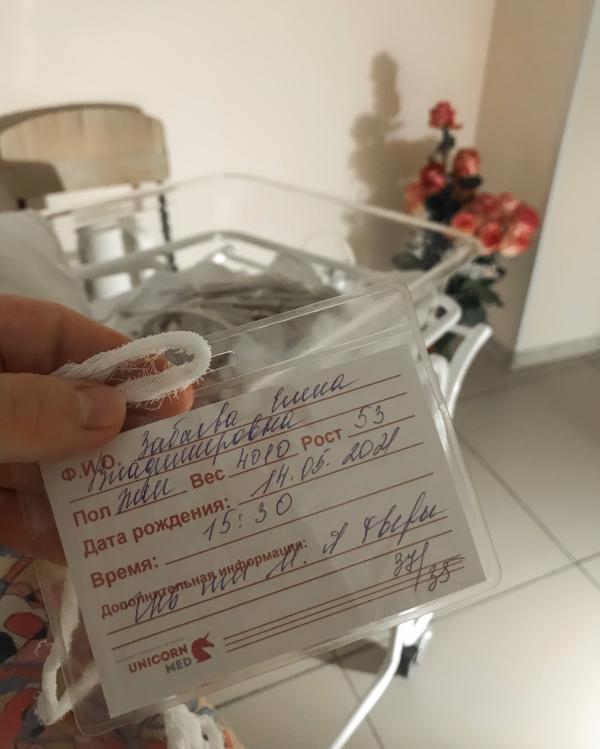 Ф.И.О. Забаева Елена
Владимировна
Пол жен Вес 4010 Рост 53
Дата рождения: 14.05.2021
Время: 15:30
Дополнительная информация:
37/35
UNICORN
MED